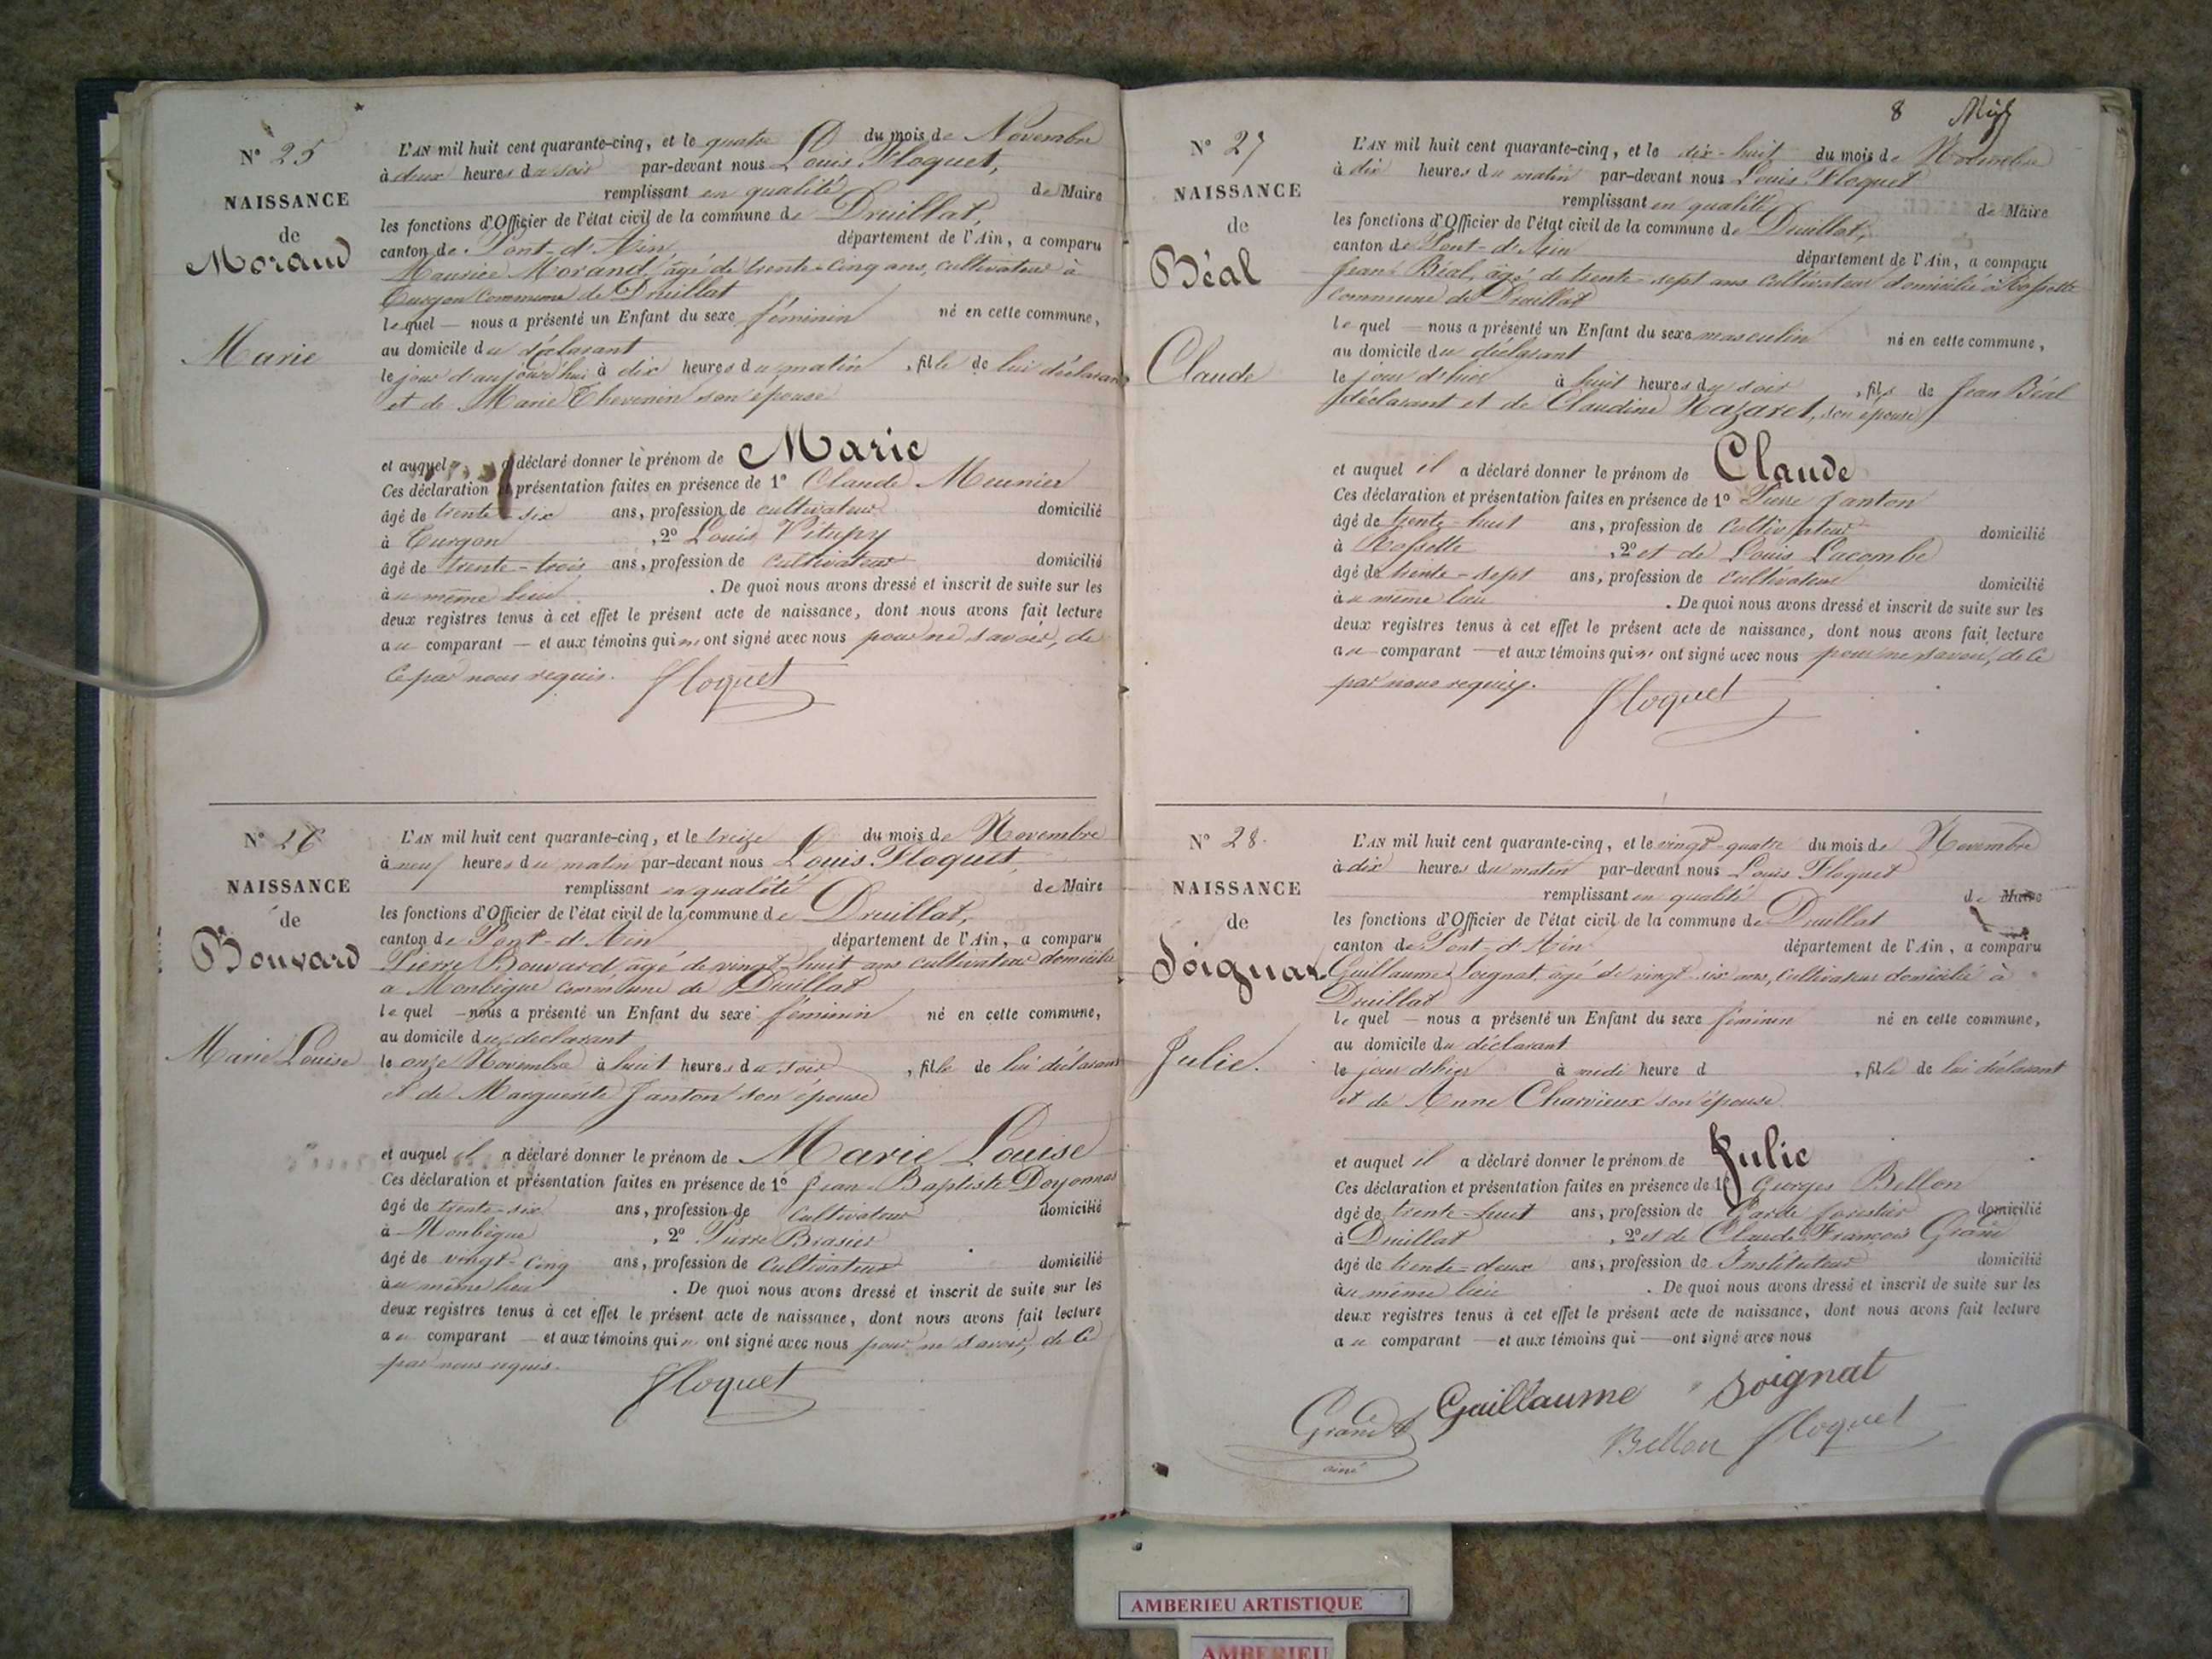 N° 25
NAISSANCE
de
Morand
Marie
L'AN mil huit cent quarante-cinq, et le quatre du mois de Novembre
à deux heures du soir par-devant nous Louis Floquet,
remplissant en qualité de Maire
les fonctions d'Officier de l'état civil de la commune de Druillat,
canton de Pont-d'Ain département de l'Ain, a comparu
Maurice Morand, âgé de trente-cinq ans, cultivateur à
Turgon commune de Druillat
lequel — nous a présenté un Enfant du sexe féminin né en cette commune,
au domicile du déclarant
le jour d'aujourd'hui à dix heures du matin, fille de lui déclarant
et de Marie Thevenin son épouse
et auquel a déclaré donner le prénom de Marie
Ces déclaration et présentation faites en présence de 1° Claude Meunier
âgé de trente-six ans, profession de cultivateur domicilié
à Turgon, 2° Louis Vitupy
âgé de trente-trois ans, profession de cultivateur domicilié
au même lieu. De quoi nous avons dressé et inscrit de suite sur les
deux registres tenus à cet effet le présent acte de naissance, dont nous avons fait lecture
au comparant — et aux témoins qui n'ont signé avec nous pour ne savoir, de
ce par nous requis. Floquet
N° 26
NAISSANCE
de
Bouvard
Marie Louise
L'AN mil huit cent quarante-cinq, et le treize du mois de Novembre
à neuf heures du matin par-devant nous Louis Floquet,
remplissant en qualité de Maire
les fonctions d'Officier de l'état civil de la commune de Druillat,
canton de Pont-d'Ain département de l'Ain, a comparu
Pierre Bouvard, âgé de vingt-huit ans cultivateur domicilié
à Monbègue commune de Druillat
lequel — nous a présenté un Enfant du sexe féminin né en cette commune,
au domicile du déclarant
le onze Novembre à huit heures du soir, fille de lui déclarant
et de Marguerite Janton son épouse
et auquel il a déclaré donner le prénom de Marie Louise
Ces déclaration et présentation faites en présence de 1° Jean-Baptiste Doyonnas
âgé de trente-six ans, profession de Cultivateur domicilié
à Monbègue, 2° Pierre Brasier
âgé de vingt-cinq ans, profession de Cultivateur domicilié
au même lieu. De quoi nous avons dressé et inscrit de suite sur les
deux registres tenus à cet effet le présent acte de naissance, dont nous avons fait lecture
au comparant — et aux témoins qui n'ont signé avec nous pour ne savoir, de ce
par nous requis. Floquet
8
N° 27
NAISSANCE
de
Béal
Claude
L'AN mil huit cent quarante-cinq, et le dix-huit du mois de Novembre
à dix heures du matin par-devant nous Louis Floquet
remplissant en qualité de Maire
les fonctions d'Officier de l'état civil de la commune de Druillat,
canton de Pont-d'Ain département de l'Ain, a comparu
Jean Béal, âgé de trente-sept ans cultivateur domicilié à Rossette
commune de Druillat
lequel — nous a présenté un Enfant du sexe masculin né en cette commune,
au domicile du déclarant
le jour d'hier à huit heures du soir, fils de Jean Béal
déclarant et de Claudine Nazaret, son épouse
et auquel il a déclaré donner le prénom de Claude
Ces déclaration et présentation faites en présence de 1° Pierre Janton
âgé de trente-huit ans, profession de Cultivateur domicilié
à Rossette, 2° et de Louis Lacombe
âgé de trente-sept ans, profession de cultivateur domicilié
au même lieu. De quoi nous avons dressé et inscrit de suite sur les
deux registres tenus à cet effet le présent acte de naissance, dont nous avons fait lecture
au comparant — et aux témoins qui n'ont signé avec nous pour ne savoir, de ce
par nous requis. Floquet
N° 28.
NAISSANCE
de
Soignat
Julie.
L'AN mil huit cent quarante-cinq, et le vingt-quatre du mois de Novembre
à dix heures du matin par-devant nous Louis Floquet
remplissant en qualité de Maire
les fonctions d'Officier de l'état civil de la commune de Druillat
canton de Pont-d'Ain département de l'Ain, a comparu
Guillaume Soignat, âgé de vingt-six ans, cultivateur domicilié à
Druillat
lequel — nous a présenté un Enfant du sexe féminin né en cette commune,
au domicile du déclarant
le jour d'hier à midi heure d , fille de lui déclarant
et de Anne Charvieux son épouse
et auquel il a déclaré donner le prénom de Julie
Ces déclaration et présentation faites en présence de 1° Georges Bellon
âgé de trente-huit ans, profession de Garde forestier domicilié
à Druillat, 2° et de Claude François Grand
âgé de trente-deux ans, profession de Instituteur domicilié
au même lieu. De quoi nous avons dressé et inscrit de suite sur les
deux registres tenus à cet effet le présent acte de naissance, dont nous avons fait lecture
au comparant — et aux témoins qui — ont signé avec nous
Grand Guillaume Soignat
ainé Bellon Floquet
AMBERIEU ARTISTIQUE
AMBERIEU